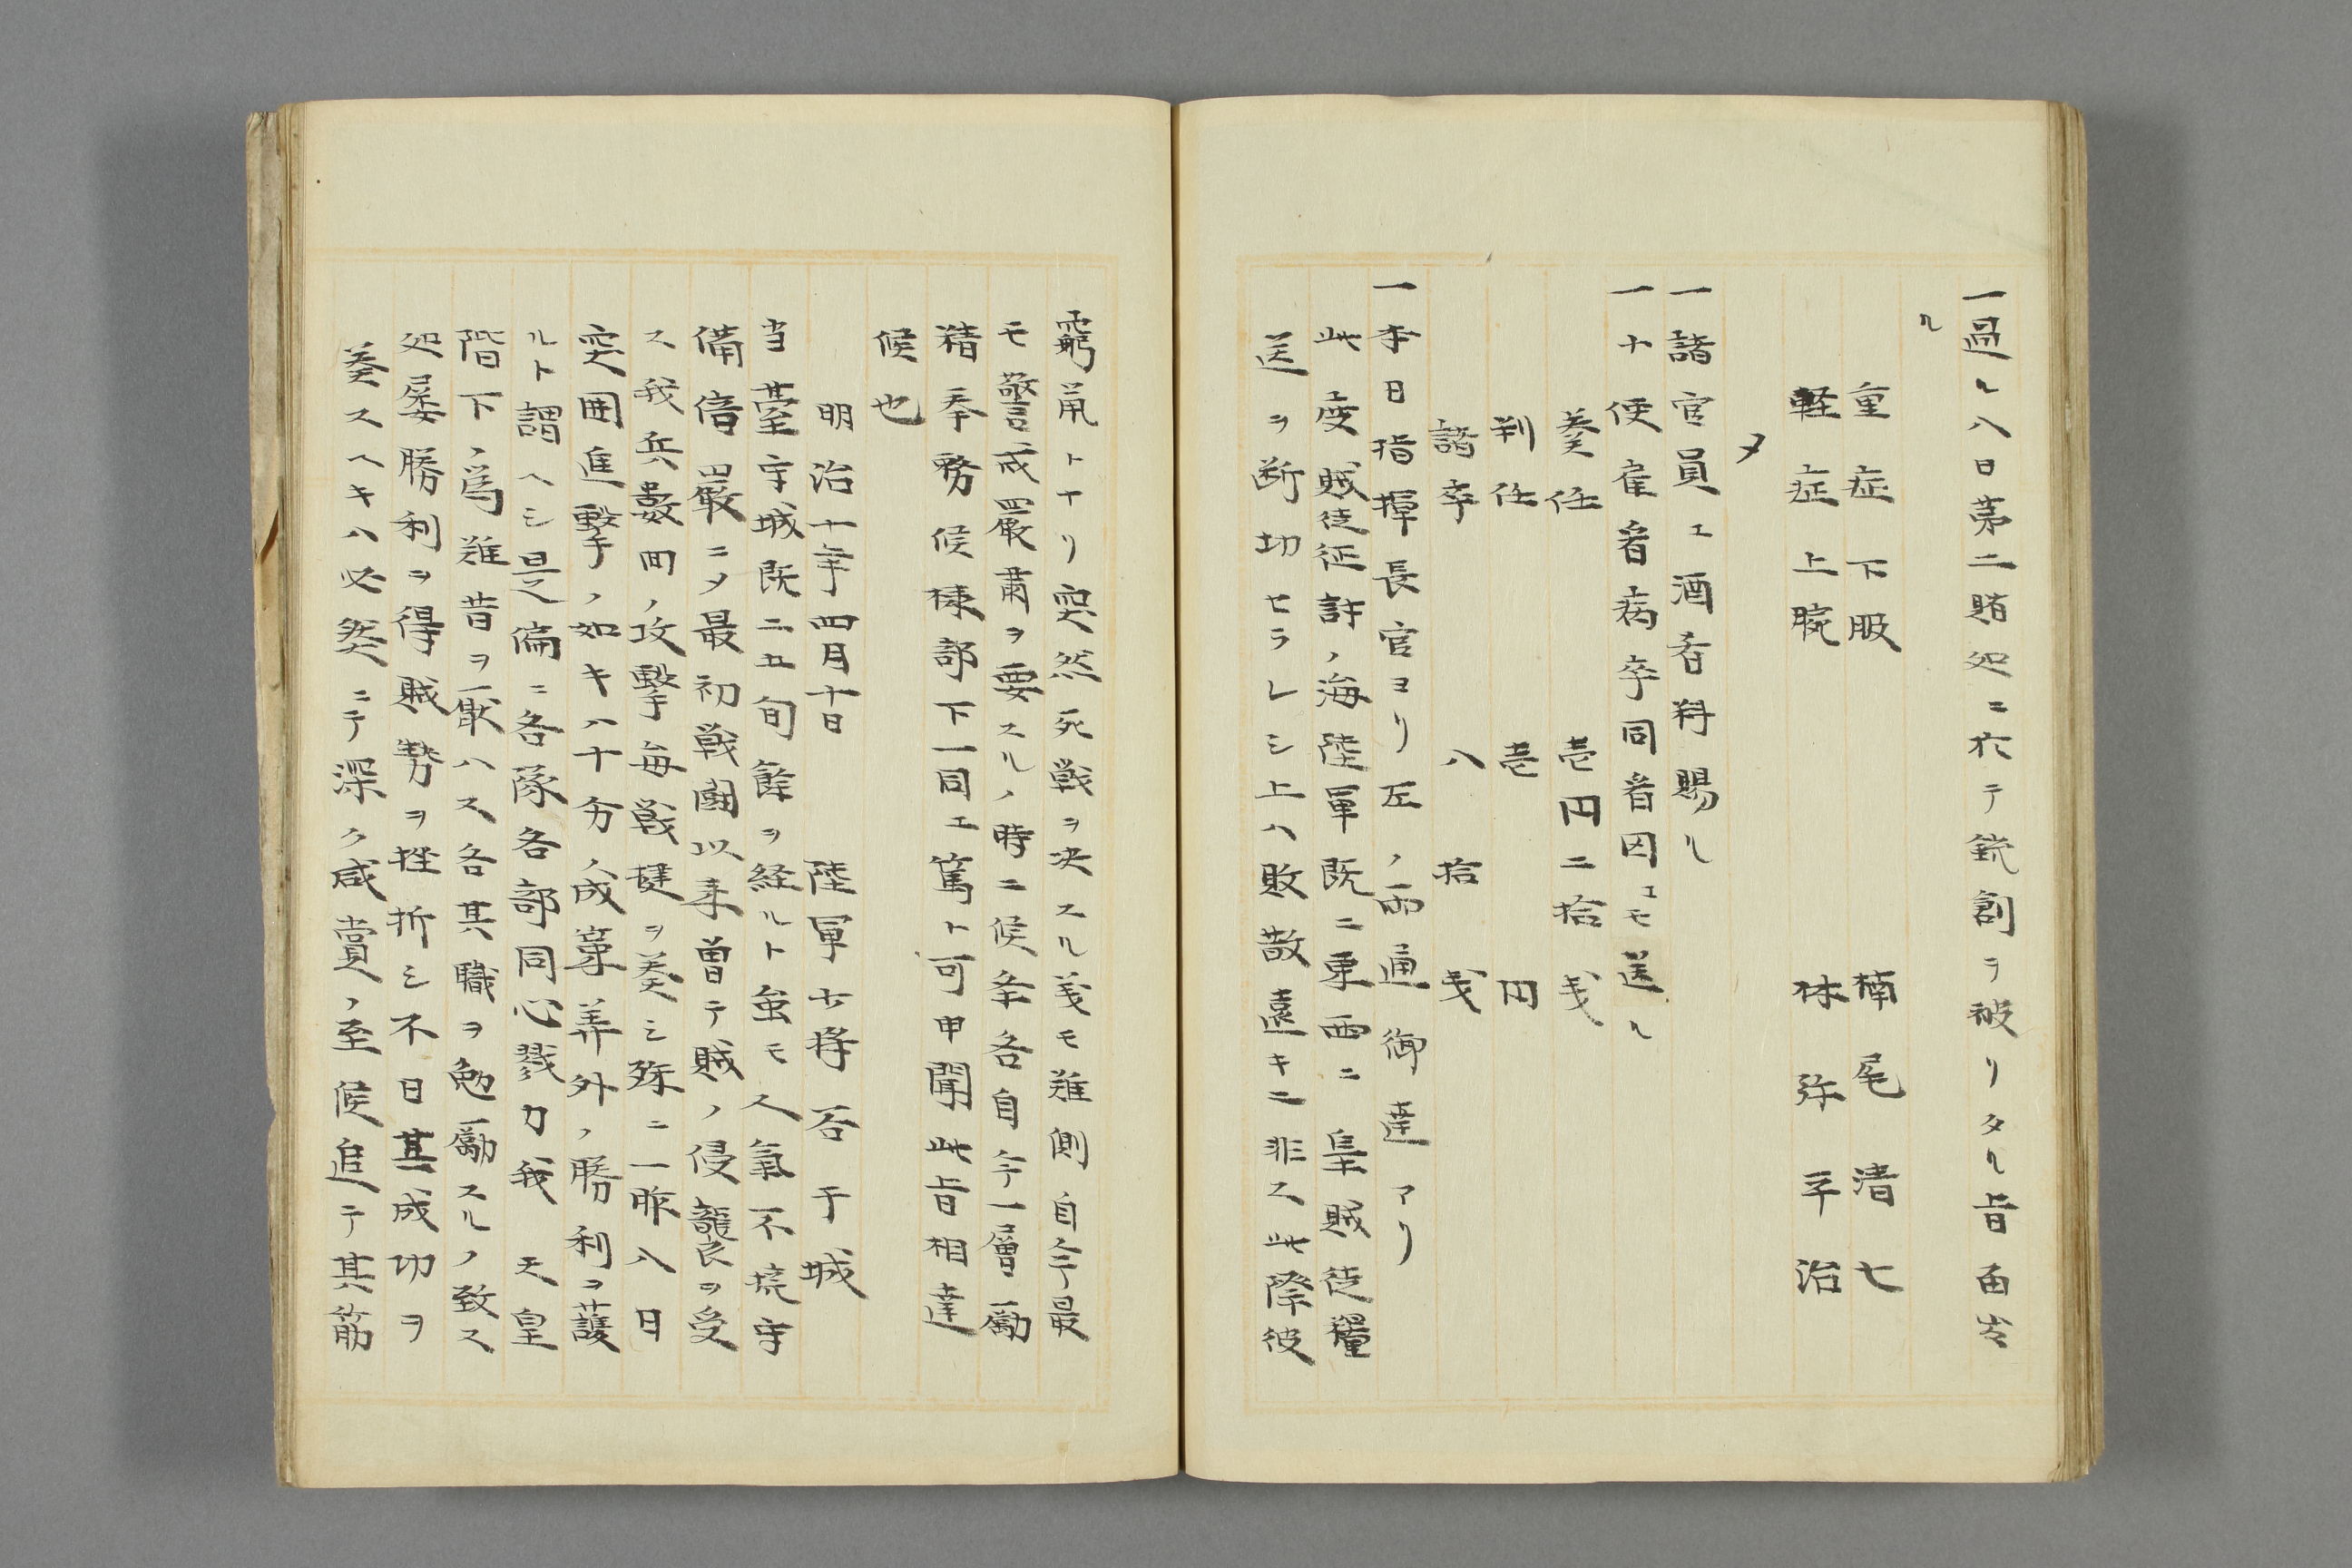 一過ル八日第二賭処ニ於テ銃創ヲ被リタル旨届出
ル
重症 下股 楠尾清七
軽症 上腕 林弥平治
〆
一諸官員エ酒肴料賜ル
一小使雇看病卒同看囚エモ送ル
奏任 壱円二拾戔
判任 壱円
諸卒 八拾戔
一本日指揮長官ヨリ左ノ両通御達アリ
此度賊徒征討ノ海陸軍既ニ東西ニ集賊徒糧
送ヲ断切セラレシ上ハ敗散遠キニ非ス此際彼
窮鼠トナリ突然死戦ヲ决スル義モ難測自今最
モ警戒嚴肅ヲ要スルノ時ニ候条各自今一層勵
精奉務候様部下一同エ篤ト可申聞此旨相達
候也
明治十年四月十日 陸軍少将谷干城
当臺守城既ニ五旬餘ヲ経ルト虽モ人氣不撓守
備倍嚴ニ〆最初戦闘以来曽テ賊ノ侵襲ヲ受
ス我兵數回ノ攻撃毎戦捷ヲ奏シ殊ニ一昨八日
突囲進撃ノ如キハ十分ノ成筆弄外ノ勝利ヲ護
ルト謂ヘシ是偏ニ各隊各部同心戮力我 天皇
階下ノ為難昔ヲ厭ハス各其職ヲ勉勵スルノ致ス
処屡勝利ヲ得賊勢ヲ挫折シ不日其成功ヲ
奏スヘキハ必然ニテ深ク咸賞ノ至候追テ其筋